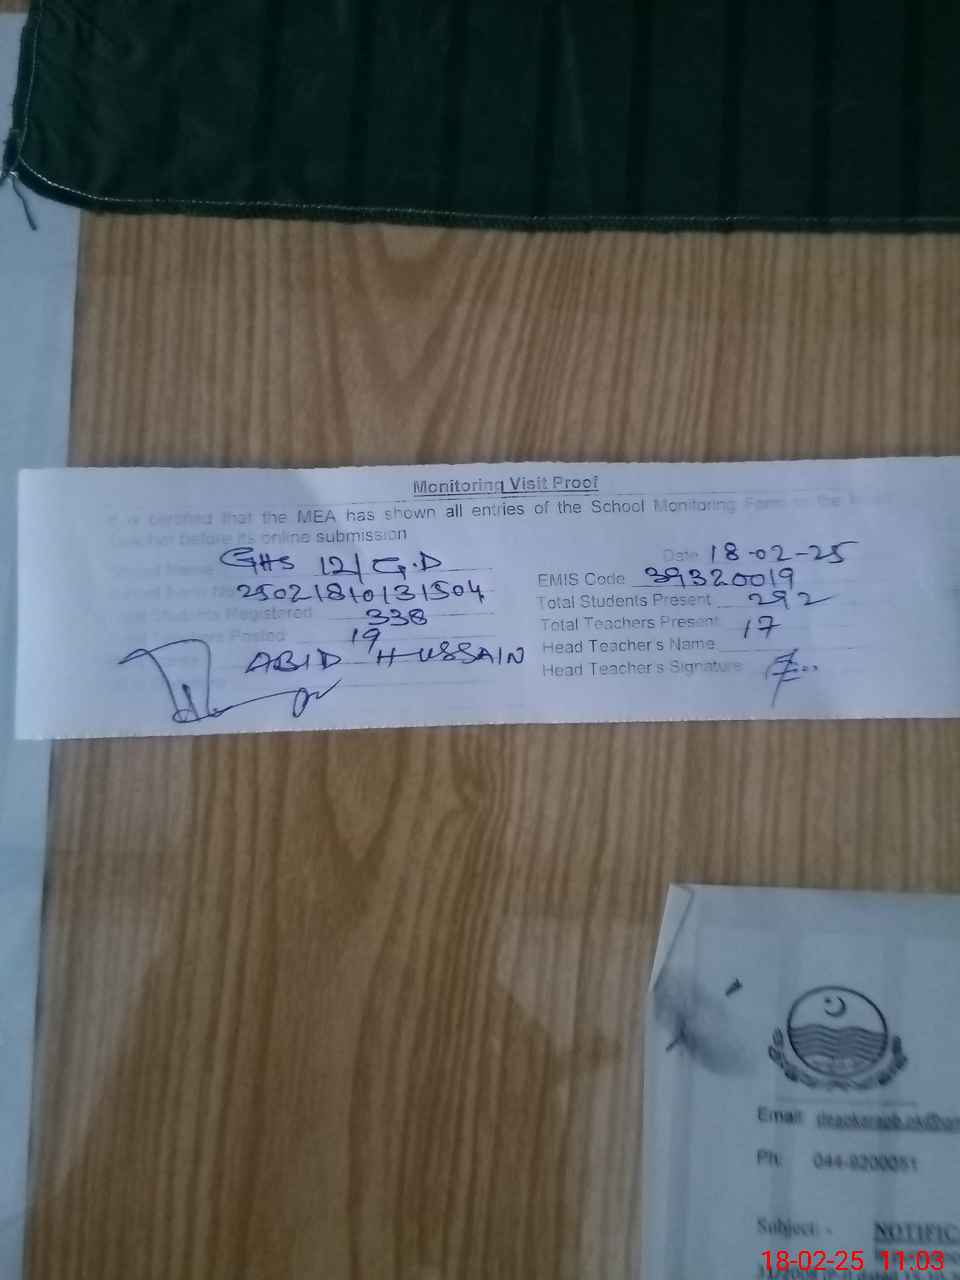 Monitoring Visit Proof
It is certified that the MEA has shown all entries of the School Monitoring Form to the
teacher before its online submission
GHS 12/G.D
Date 18-02-25
25021810131504
EMIS Code 39320019
Students Registered 338
Total Students Present 292
Posted 19
Total Teachers Present 17
ABID HUSSAIN
Head Teacher's Name
Head Teacher's Signature
Email:
Ph: 044-9200051
Subject: - NOTIFIC
18-02-25 11:03